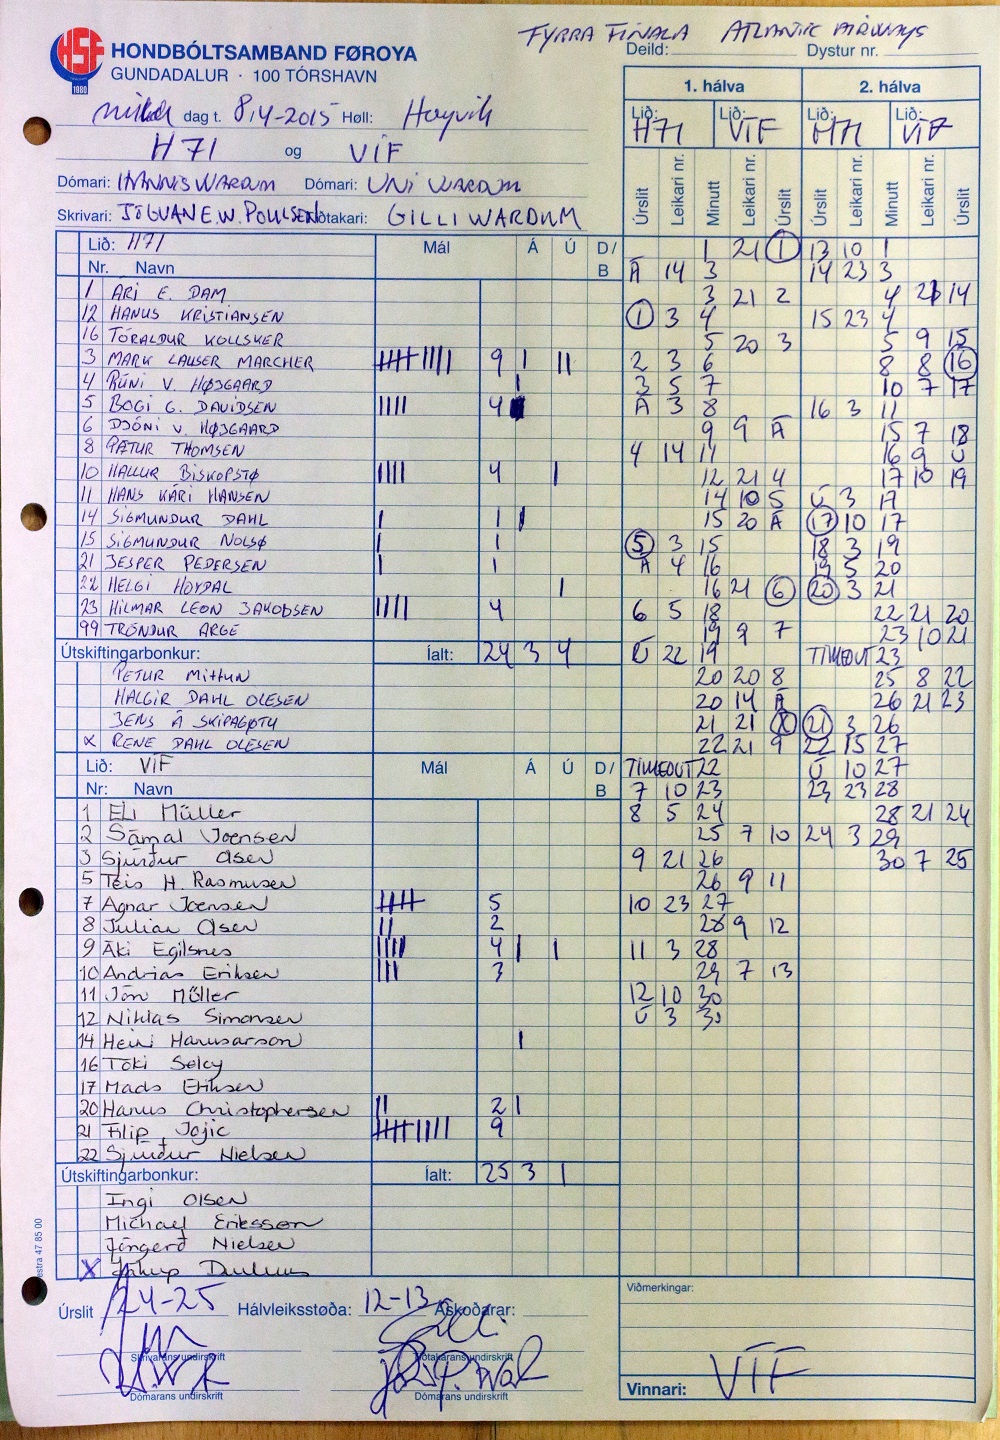 FYRRA FINALA ATLANTIC AIRWAYS
HSF
1980
HONDBÓLTSAMBAND FØROYA
GUNDADALUR · 100 TÓRSHAVN
Deild: Dystur nr.
dag t. 8/4-2015 Høll: Hoyvík
H71 og VÍF
Dómari: HANNIS WARDUM Dómari: UNI WARDUM
Skrivari: JÓGVAN E.W. POULSEN Tíðtakari: GILLI WARDUM
1. hálva 2. hálva
Lið: H71 Lið: VÍF Lið: H71 Lið: VÍF
Úrslit Leikari nr. Minutt Leikari nr. Úrslit Úrslit Leikari nr. Minutt Leikari nr. Úrslit
Lið: H71 Mál Á Ú D/B
Nr. Navn
1 ARI E. DAM
12 HANUS KRISTIANSEN
16 TÓRALDUR KOLLSKER
3 MARK LAUSER MARCHER 9
4 RÚNI V. HØJGAARD
5 BOGI G. DAVIDSEN 4
6 DJÓNI V. HØJGAARD
8 PÆTUR THOMSEN
10 HALLUR BISKOPSTØ 4
11 HANS KÁRI HANSEN
14 SIGMUNDUR DAHL 1
15 SIGMUNDUR NOLSØ 1
21 JESPER PEDERSEN 1
22 HELGI HOYDAL
23 HILMAR LEON JAKOBSEN 4
99 TRÓNDUR ARGE
Útskiftingarbonkur: Íalt: 24 3 4
PETUR MITTUN
HALGIR DAHL OLESEN
JENS Á SKIPAGØTU
X RENE DAHL OLESEN
Lið: VÍF Mál Á Ú D/B
Nr: Navn
1 Eli Müller
2 Sámal Joensen
3 Sjúrður Olsen
5 Teis H. Rasmusen
7 Agnar Joensen 5
8 Julian Olsen 2
9 Áki Egilsnes 4
10 Andrias Eriksen 3
11 Jón Müller
12 Niklas Simonsen
14 Heini Hanusarson
16 Tóki Seley
17 Mads Eriksen
20 Hanus Christophersen 2
21 Filip Jojic 9
22 Sjúrður Nielsen
Útskiftingarbonkur: Íalt: 25 3 1
Ingi Olsen
Michael Eriksson
Jóngerð Nielsen
X
1 21 1 13 10 1
Á 14 3 14 23 3
3 21 2 4 21 14
1 3 4 15 23 4
5 20 3 5 9 15
2 3 6 8 8 16
3 5 7 10 7 17
Á 3 8 16 3 11
9 9 Á 15 7 18
4 14 11 16 9 Ú
12 21 4 17 10 19
14 10 5 Ú 3 17
15 20 Á 17 10 17
5 3 15 18 3 19
Á 4 16 19 5 20
16 21 6 20 3 21
6 5 18 22 21 20
19 9 7 23 10 21
Ú 22 19 TIMEOUT 23
20 20 8 25 8 22
20 14 Á 26 21 23
21 21 X 21 3 26
22 21 9 22 15 27
TIMEOUT 22 Ú 10 27
7 10 23 23 23 28
8 5 24 28 21 24
25 7 10 24 3 29
9 21 26 30 7 25
26 9 11
10 23 27
28 9 12
11 3 28
29 7 13
12 10 30
Ú 3 30
Úrslit 24-25 Hálvleiksstøða: 12-13 Áskoðarar:
Skrivarans undirskrift Tíðtakarans undirskrift
Dómarans undirskrift Dómarans undirskrift
Viðmerkingar:
Vinnari: VÍF